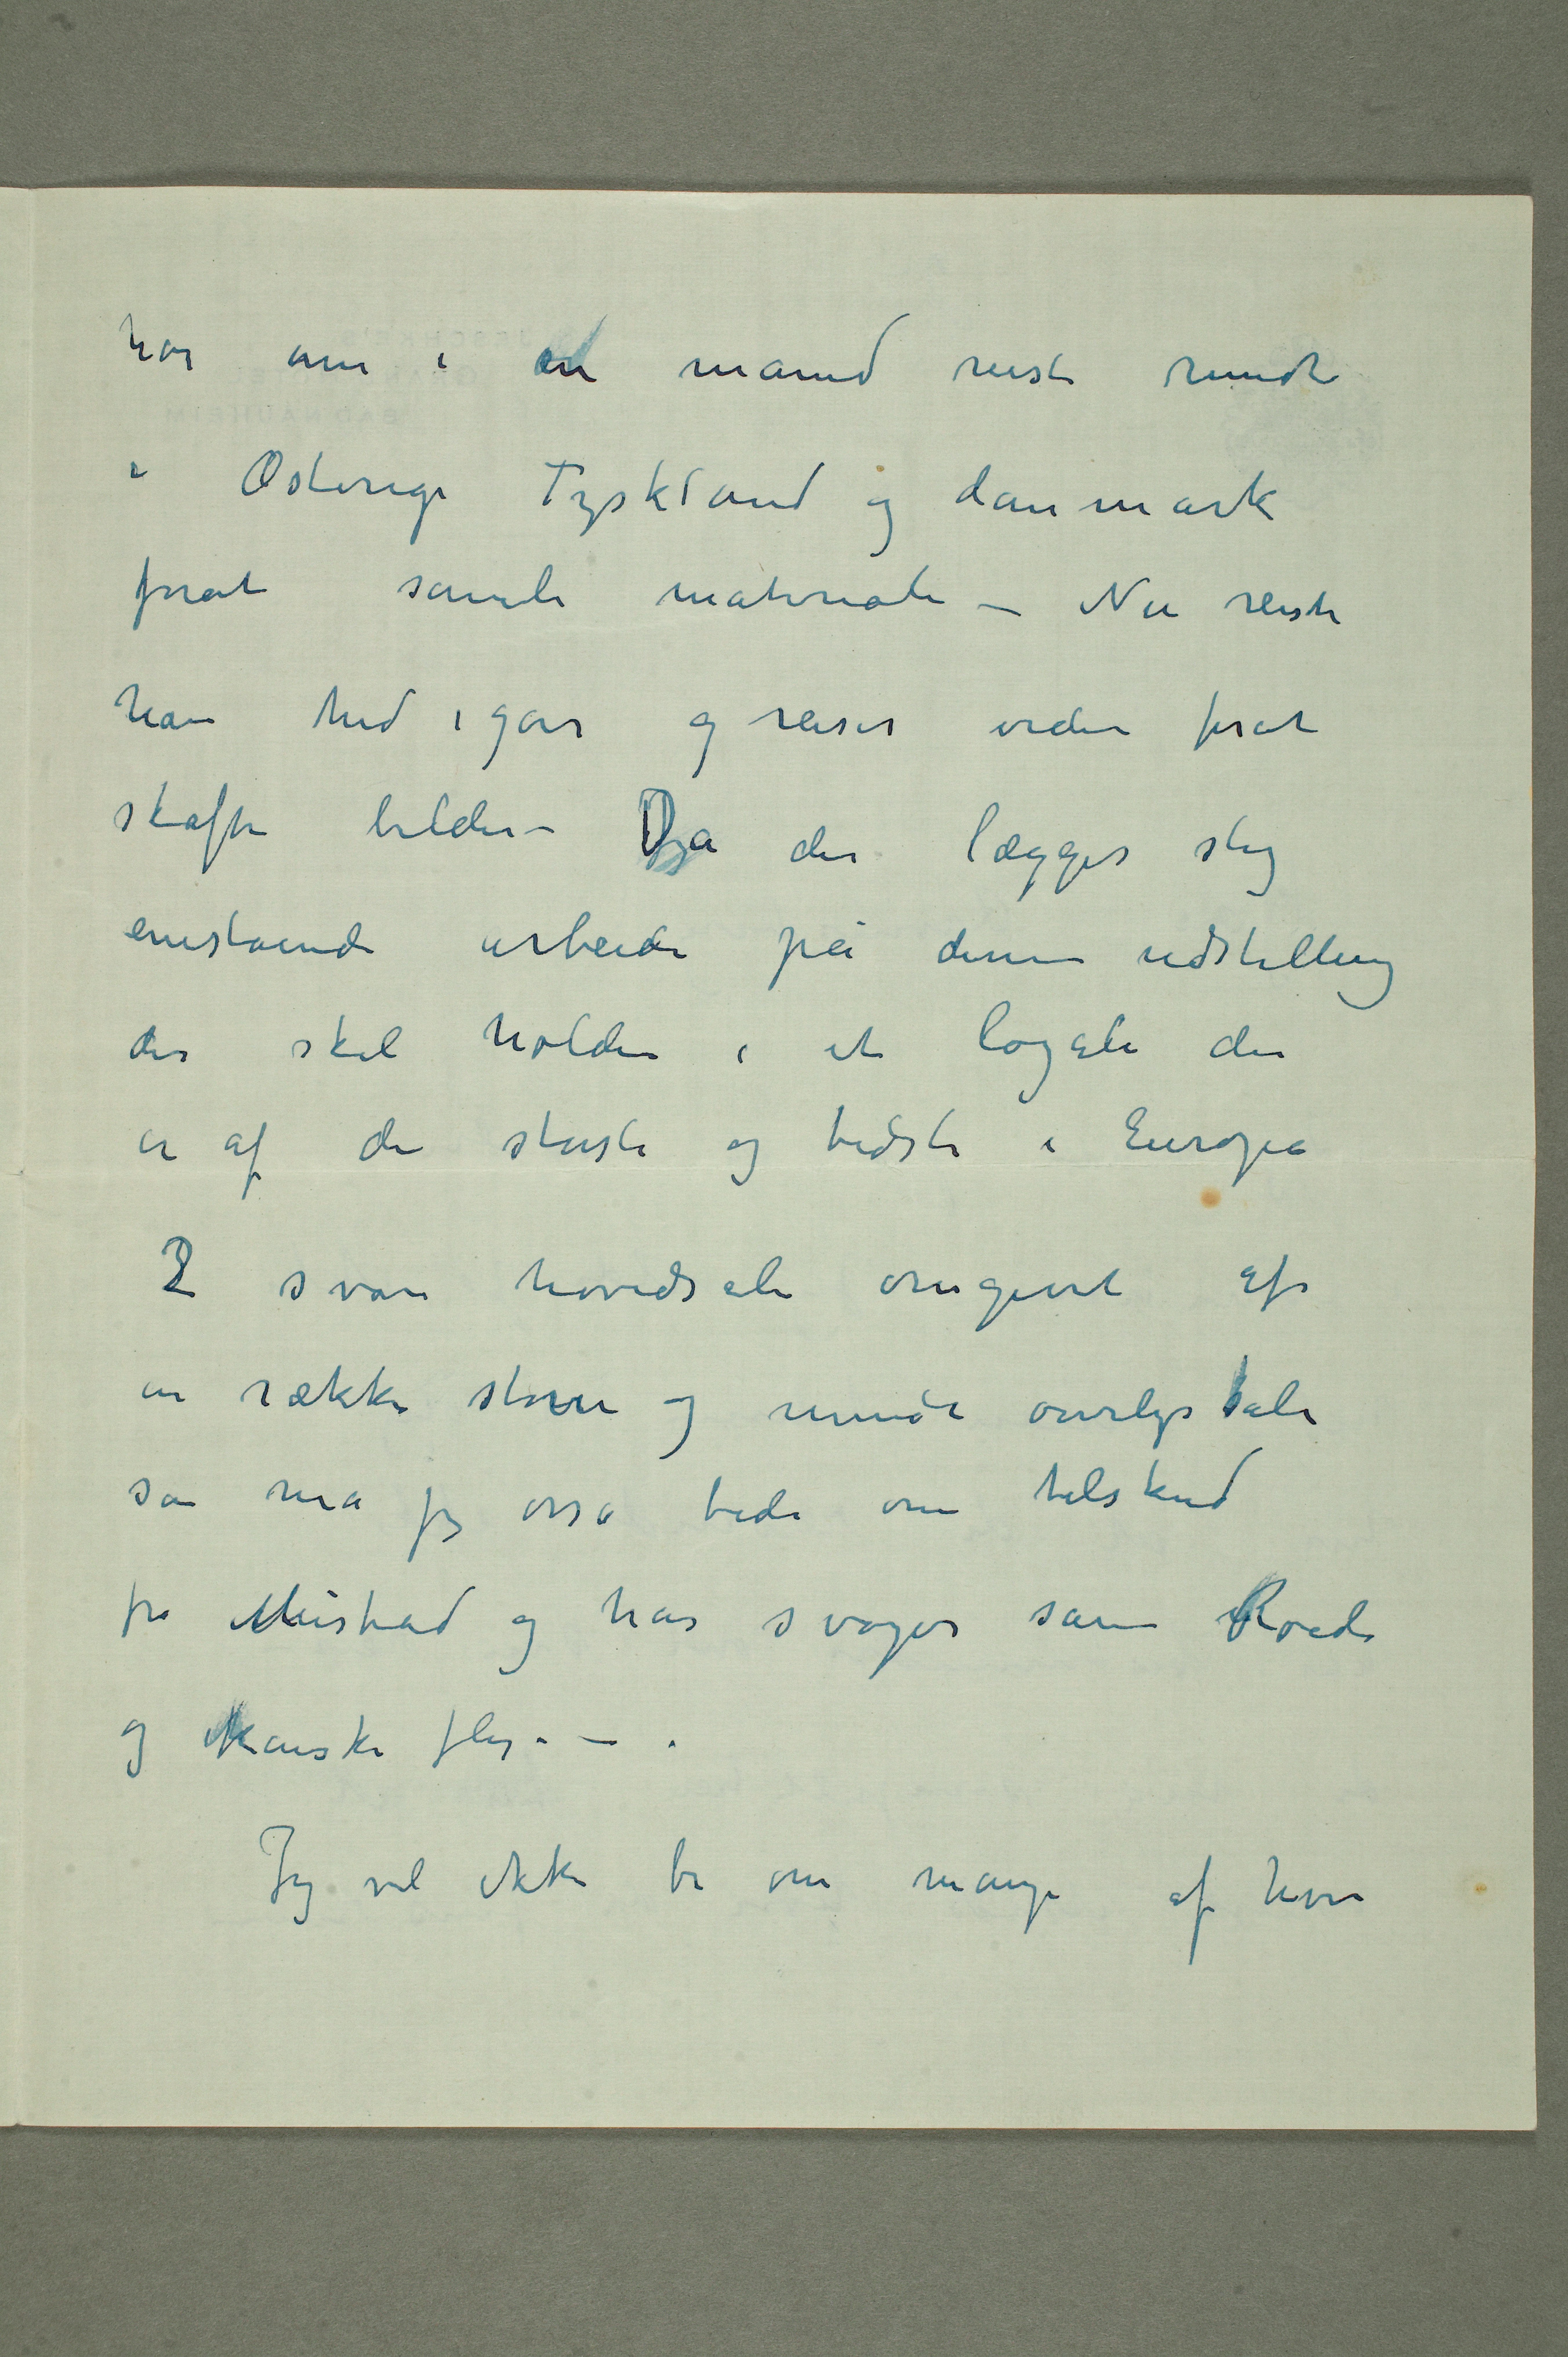 har nu i en maaned reist rundt
i Østerige Tyskland og danmark
forat samle materiale – Nu reiste
han hid igår og reiser videre forat
skaffe billeder – Da der lægges slig
enestående arbeide på denne udstilling
der skal holdes i et logale der
er af de største og bedste i Europa
2 svære hovedsale omgivet af
en række større og mindre overlyssale
så må jeg også bede om tilskud
fra Mustad og hans svoger samt Roede
og kanske fler – .
Jeg vil ikke be om mange af hver